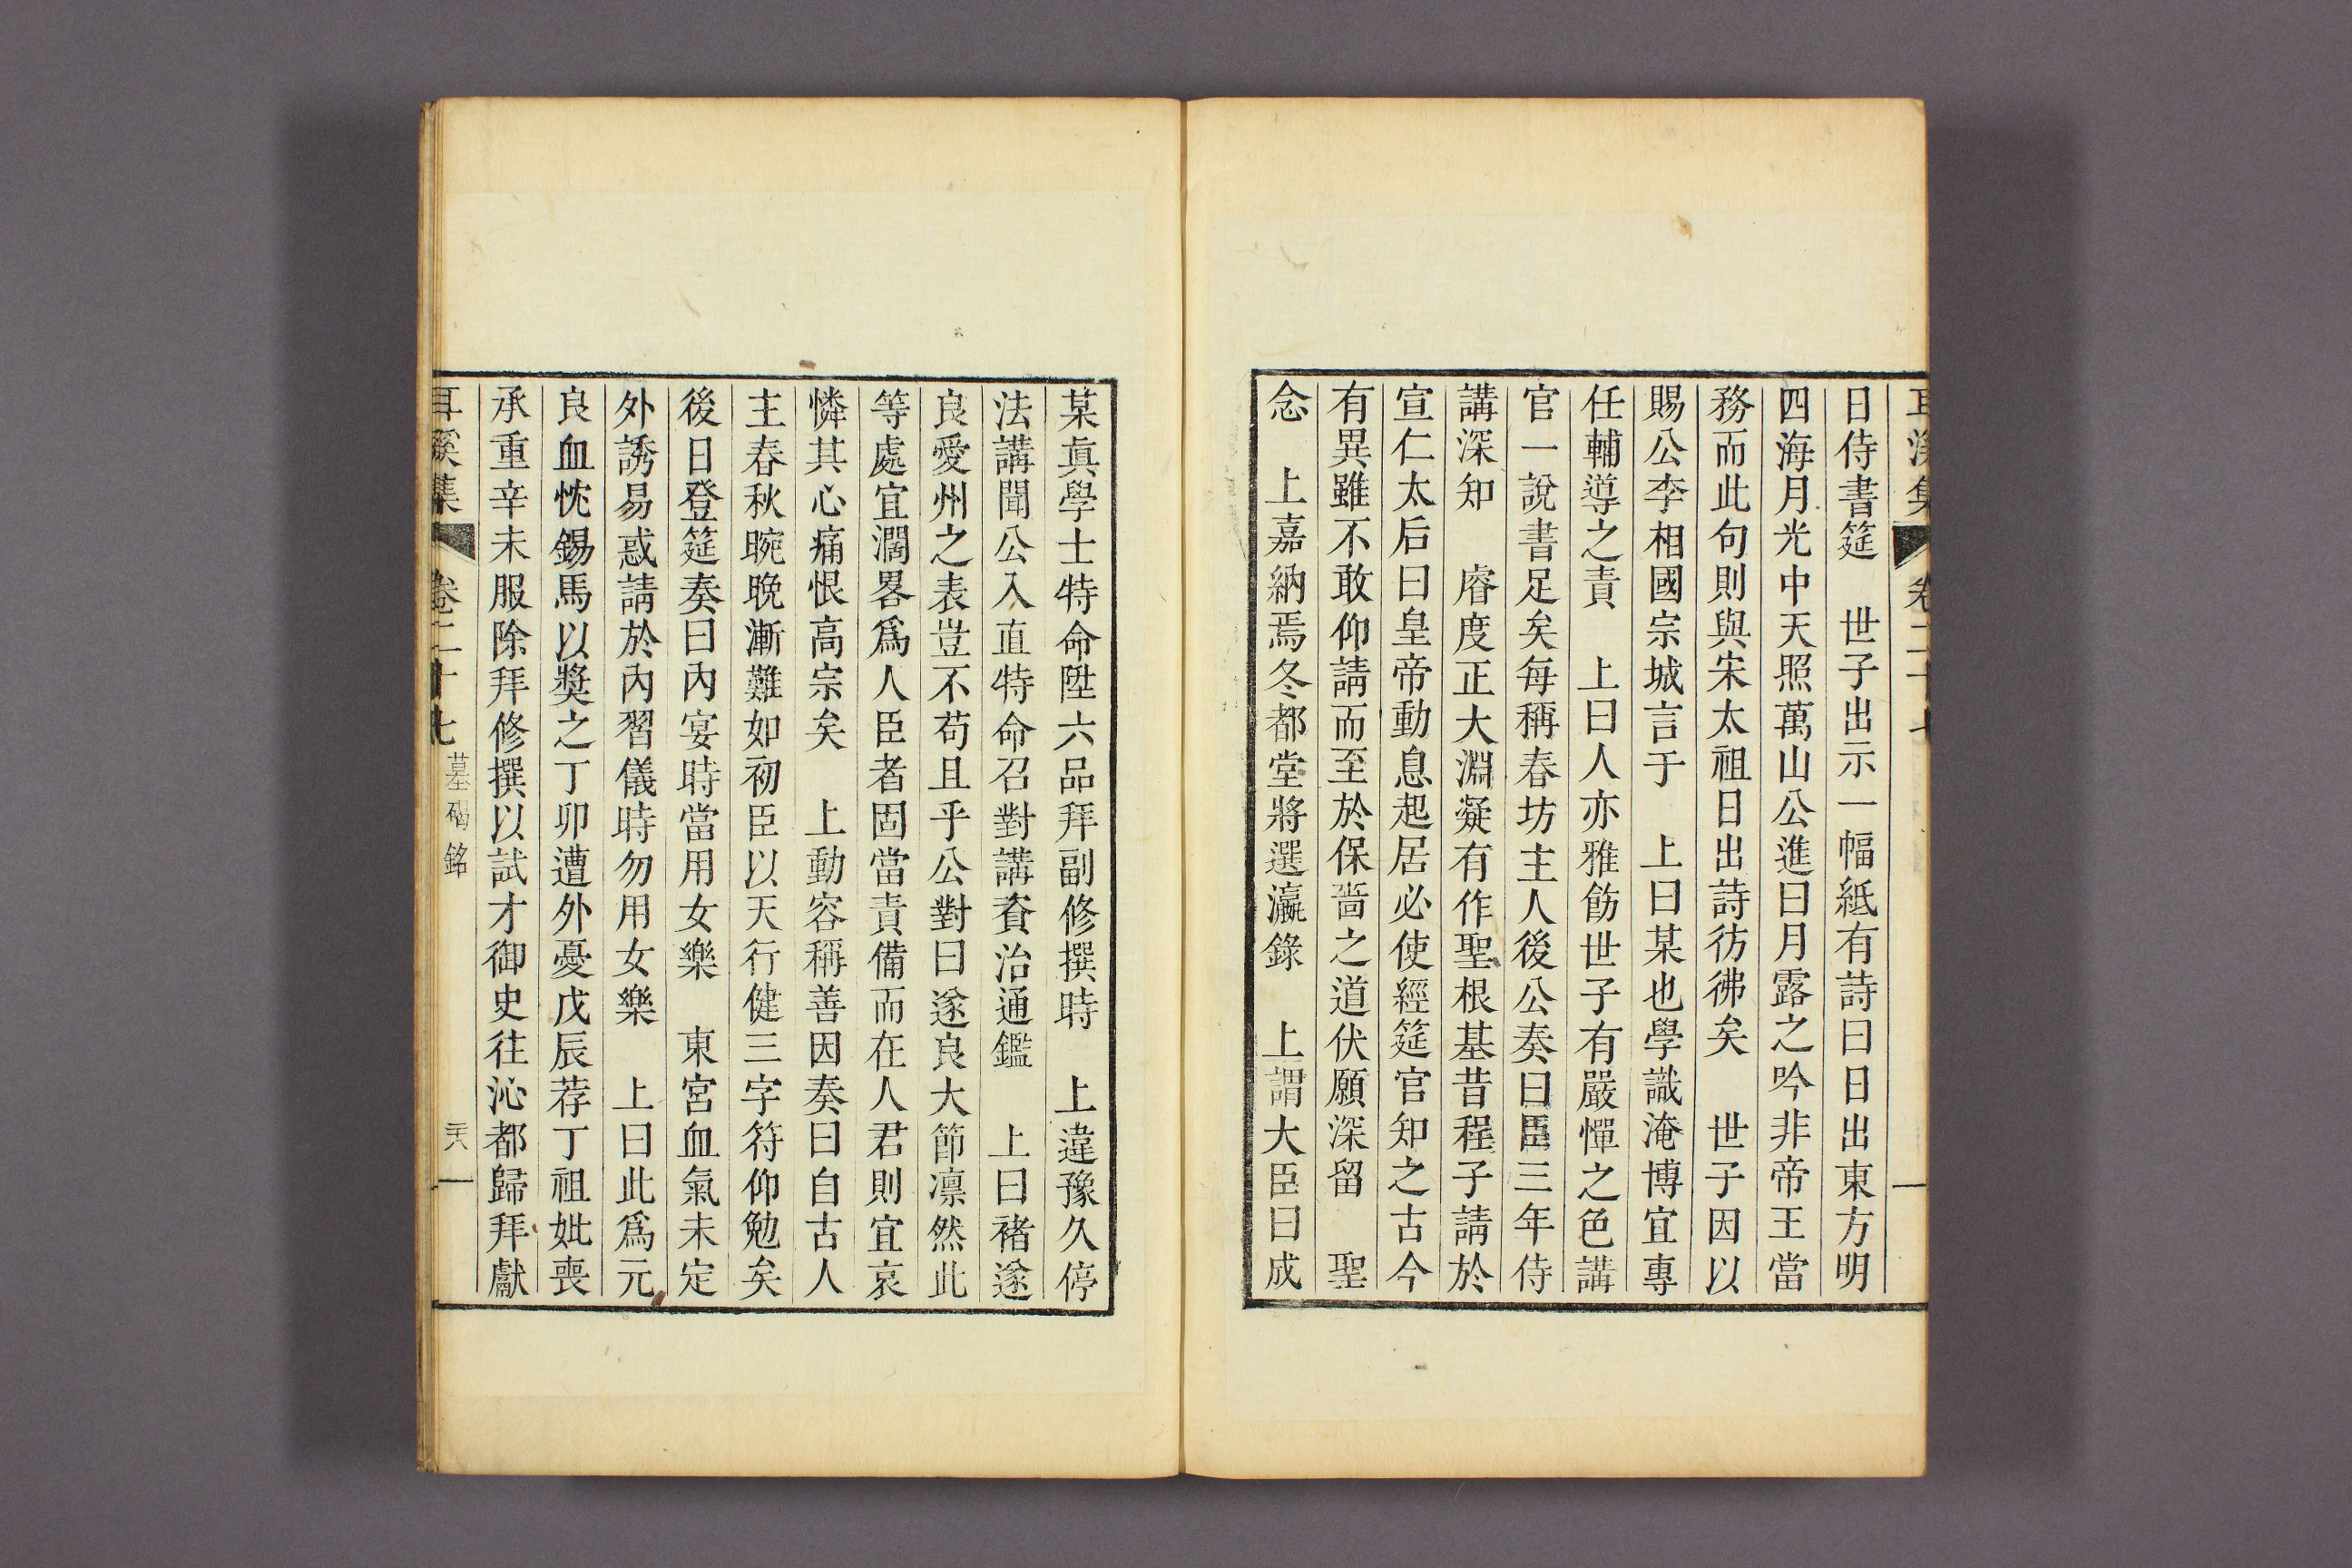 耳溪集 卷二十七 一
日侍書筵　世子出示一幅紙有詩曰日出東方明
四海月光中天照萬山公進曰月露之吟非帝王當
務而此句則與宋太祖日出詩彷彿矣　世子因以
賜公李相國宗城言于　上曰某也學識淹博宜專
任輔導之責　上曰人亦雅飭世子有嚴憚之色講
官一說書足矣每稱春坊主人後公奏曰臣三年侍
講深知　睿度正大淵凝有作聖根基昔程子請於
宣仁太后曰皇帝動息起居必使經筵官知之古今
有異雖不敢仰請而至於保嗇之道伏願深留　聖
念　上嘉納焉冬都堂將選瀛錄　上謂大臣曰成
某眞學士特命陞六品拜副修撰時　上違豫久停
法講聞公入直特命召對講資治通鑑　上曰褚遂
良愛州之表豈不苟且乎公對曰遂良大節凛然此
等處宜濶畧爲人臣者固當責備而在人君則宜哀
憐其心痛恨高宗矣　上動容稱善因奏曰自古人
主春秋晼晩漸難如初臣以天行健三字符仰勉矣
後日登筵奏曰內宴時當用女樂　東宮血氣未定
外誘易惑請於內習儀時勿用女樂　上曰此爲元
良血忱錫馬以奬之丁卯遭外憂戊辰荐丁祖妣喪
承重辛未服除拜修撰以試才御史往沁都歸拜獻
耳溪集 卷二十七 墓碣銘 一